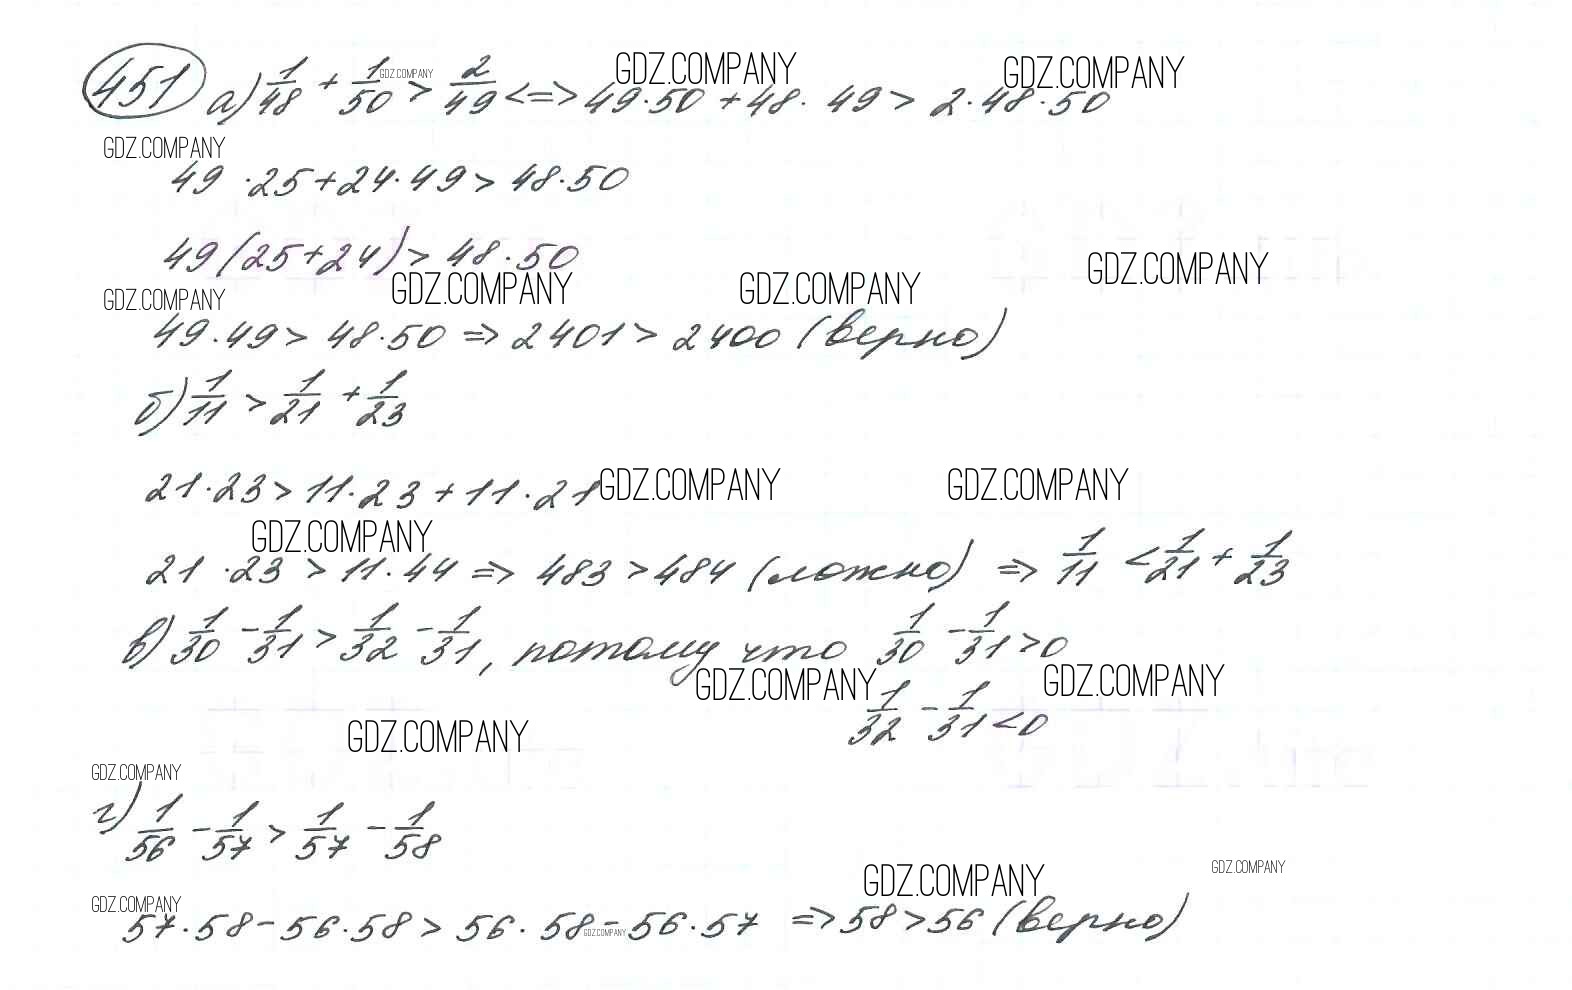 451 а) 1/48 + 1/50 > 2/49 <=> 49·50 + 48·49 > 2·48·50
GDZ.COMPANY GDZ.COMPANY GDZ.COMPANY
GDZ.COMPANY
49·25 + 24·49 > 48·50
49(25 + 24) > 48·50
GDZ.COMPANY GDZ.COMPANY GDZ.COMPANY GDZ.COMPANY
49·49 > 48·50 => 2401 > 2400 (верно)
б) 1/11 > 1/21 + 1/23
21·23 > 11·23 + 11·21
GDZ.COMPANY GDZ.COMPANY
GDZ.COMPANY
21·23 > 11·44 => 483 > 484 (ложно) => 1/11 < 1/21 + 1/23
в) 1/30 - 1/31 > 1/32 - 1/31, потому что 1/30 - 1/31 > 0
GDZ.COMPANY GDZ.COMPANY
1/32 - 1/31 < 0
GDZ.COMPANY
GDZ.COMPANY
г) 1/56 - 1/57 > 1/57 - 1/58
GDZ.COMPANY GDZ.COMPANY
GDZ.COMPANY
57·58 - 56·58 > 56·58 - 56·57 => 58 > 56 (верно)
GDZ.COMPANY